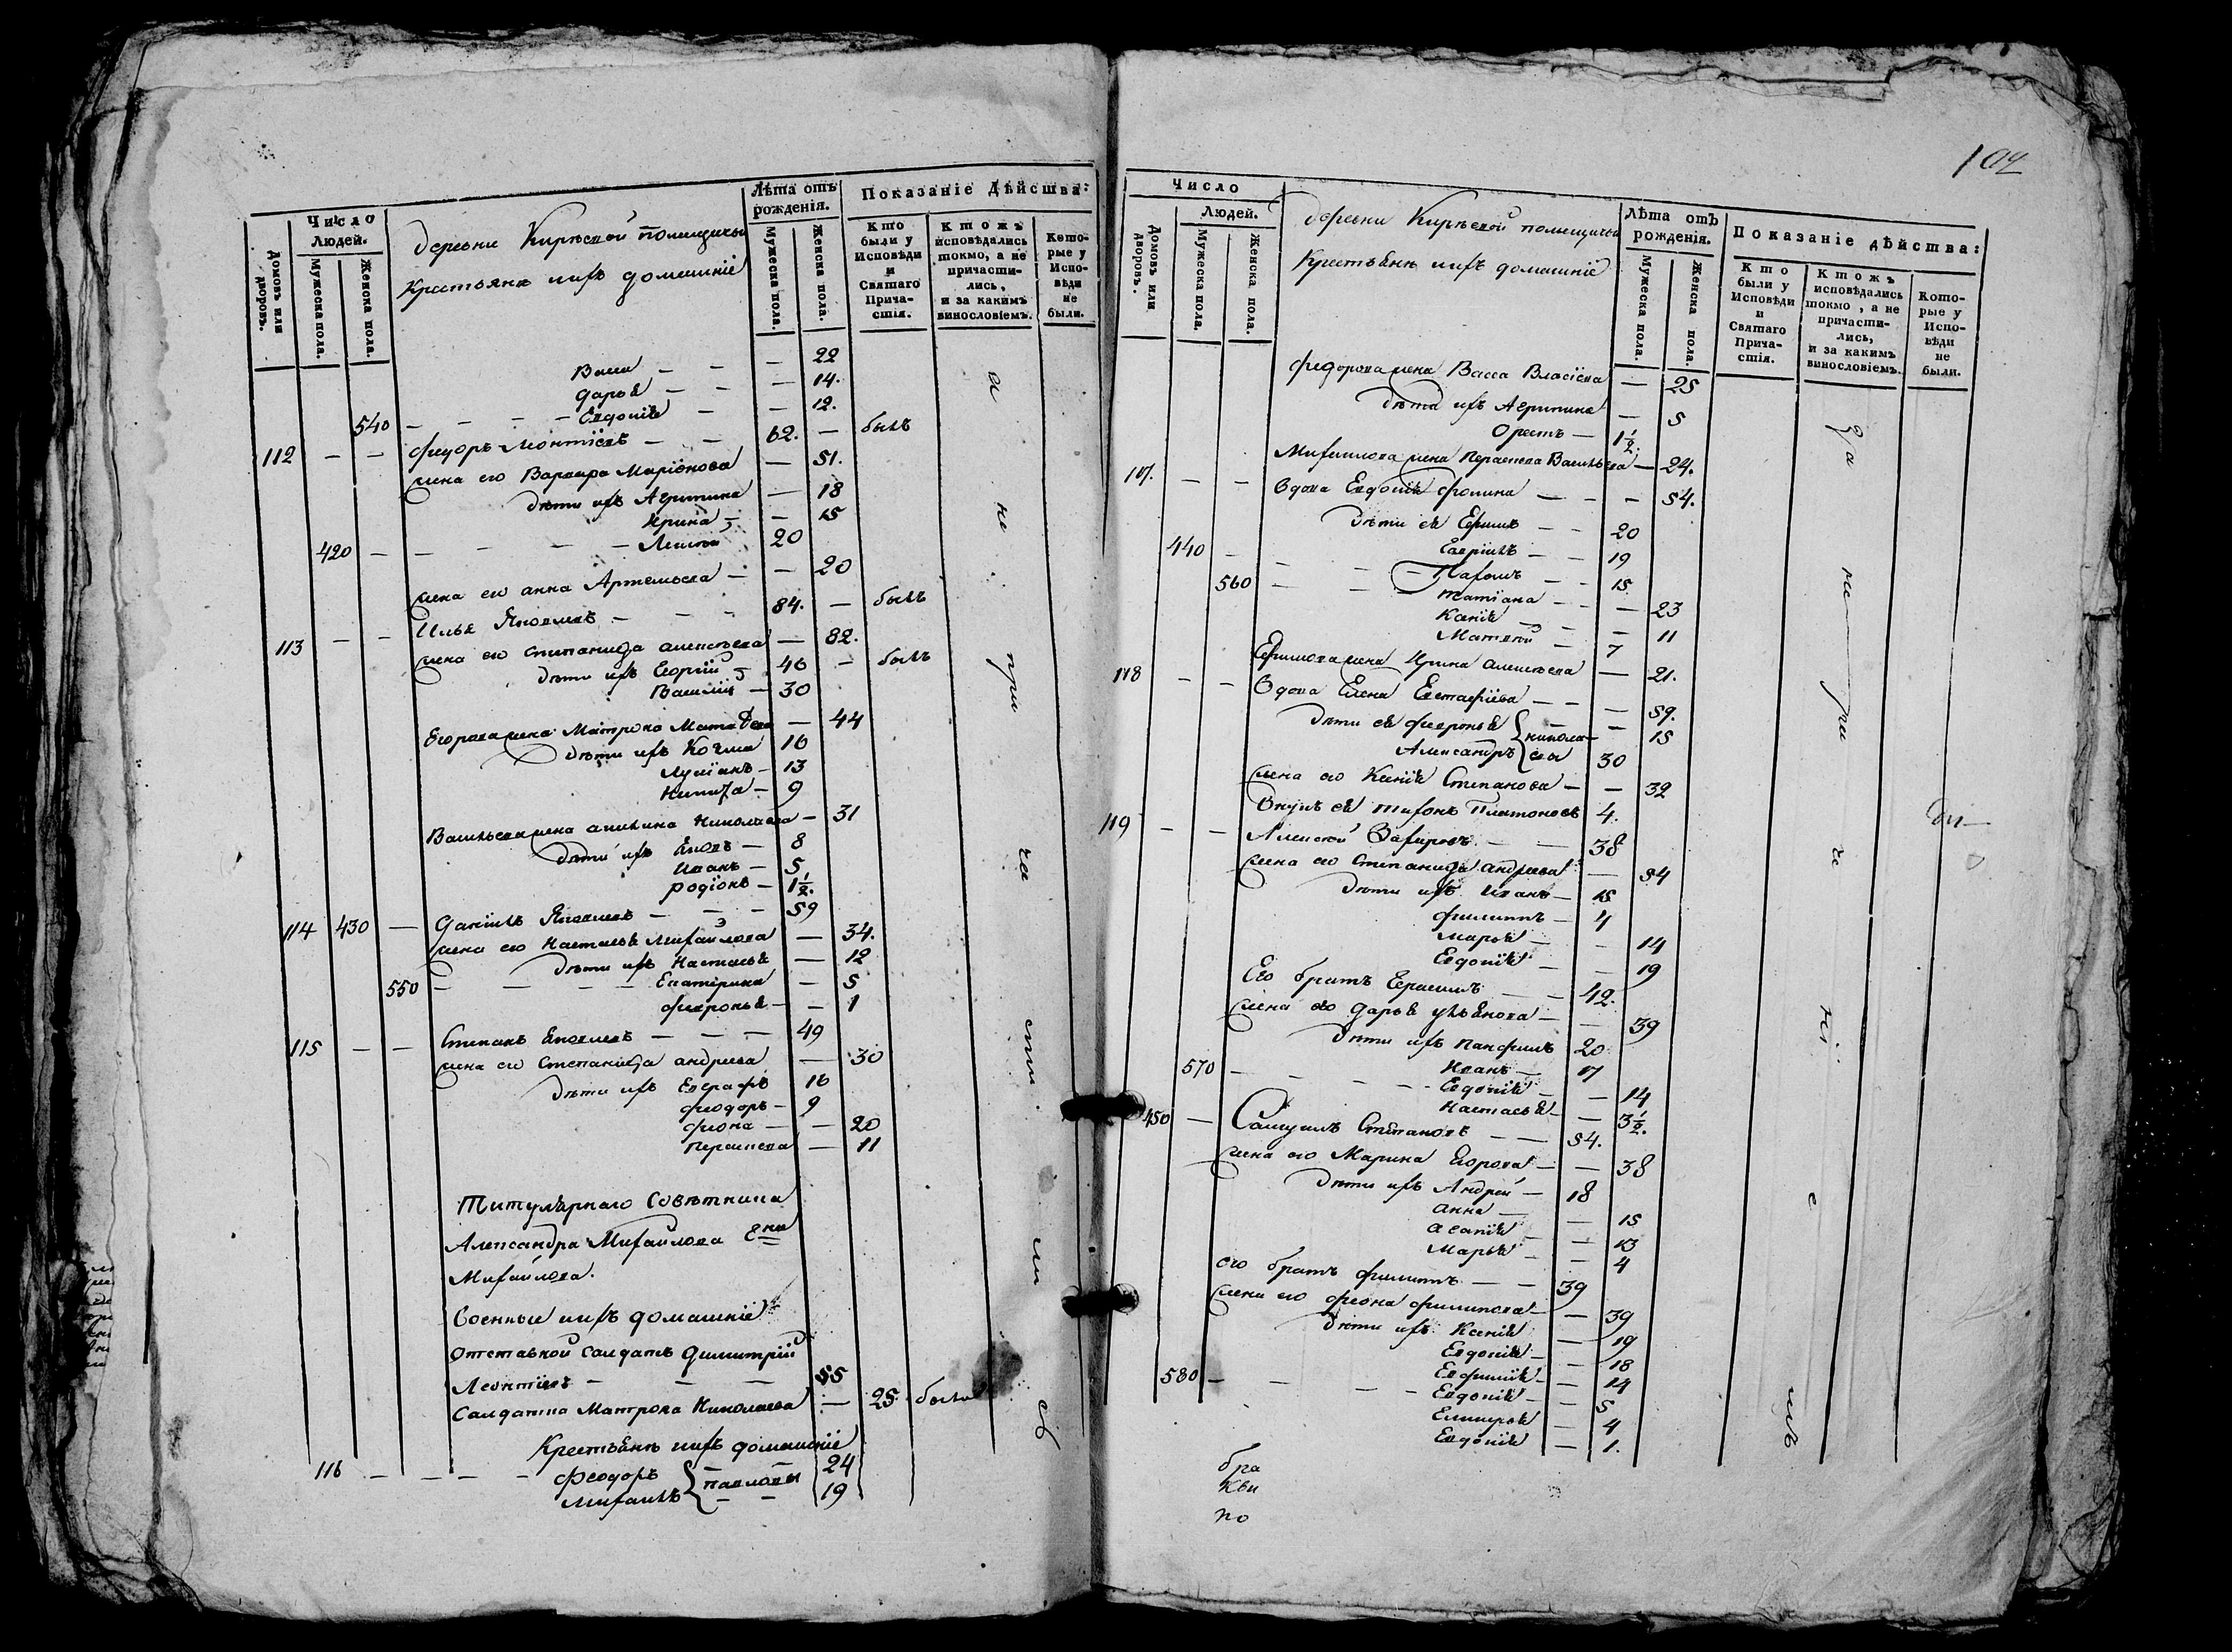 Число
Людей.
Домовъ или дворовъ.
Мужеска пола.
Женска пола.
деревни Кирѣевой помещичьи
Крестьяне ихъ домашніе
Лѣта отъ рожденія.
Мужеска пола.
Женска пола.
Показаніе Дѣйства:
Кто были у Исповѣди и Святаго Прича-стія.
Ктожъ исповѣдались токмо, а не причасти-лись, и за какимъ винословіемъ.
Кото-рые у Испо-вѣди не были.
Васса — — — 22
Дарья — — — 14.
540 — — — — Евдокія — — 12.
112 — — Федоръ Леонтіевъ — — 62. — былъ
жена его Варвара Маріонова — 51.
дѣти ихъ Агрипина — 18
Ирина — — 15
420 — — — — — 20
жена его Анна Артемьева — — 20
113 — — Илья Яковлевъ — — — 84. — былъ
жена его Степанида Алексѣева — 82.
дѣти ихъ Георгій 46 — былъ
Василій — 30
Егорова жена Матрона — 44
дѣти ихъ Козма 16
Лукіанъ — 13
Никита — 9
Васильева жена Акилина Николаева — 31
дѣти ихъ Яковъ — 8
Иванъ — 5
Родіонъ — 1 1/2.
114 430 — Даніилъ Яковлевъ — — — 59
жена его Настасья Михайлова — 34.
дѣти ихъ Настасья — 12
550 — — — — Екатерина — 5
Февронья — — 1
115 — — Степанъ Яковлевъ — — — 49
жена его Степанида Андреева — 30
дѣти ихъ Евграфъ 16
Феодоръ — 9
Фіона — — 20
Параскева — 11
Титулярнаго Совѣтника
Александра Михайлова
Михайлова.
Военные ихъ домашніе
Отставной Салдатъ Димитрій
Леонтіевъ — — — 55
Салдатка Матрона Николаева — 25. была
Крестьяне ихъ домашніе
116 — — — — Феодоръ Павловы — 24
Михаилъ — — 19
102
Число
Людей.
Домовъ или дворовъ.
Мужеска пола.
Женска пола.
деревни Кирѣевой помещичьи
Крестьяне ихъ домашніе
Лѣта отъ рожденія.
Мужеска пола.
Женска пола.
Показаніе дѣйства:
Кто были у Исповѣди и Святаго Прича-стія.
Ктожъ исповѣдались токмо, а не причасти-лись, и за какимъ винословіемъ.
Кото-рые у Испо-вѣди не были.
Федорова жена Васса Власіева — 25
дѣти ихъ Агрипина — 5
Орестъ — 1 1/2.
Михаилова жена Параскева Васильева — 24.
117. — — Вдова Евдокія Фокина — — — 54.
дѣти ея Ефимъ — — 20
440 — Гавріилъ — — 19
— — — Пахомъ — — 15
560 — — — Татіана — — — 23
Ксенія — — — 11
Матвей — 7
Ефимова жена Ирина Алексѣева — 21.
118 — — Вдова Елена Евстафіева — — — 59.
дѣти ея Февронья Никола- — 15
Александръ ева 30
жена его Ксенія Степанова — — 32
Внукъ ея Тихонъ Платоновъ 4.
119 — — Алексей Захаровъ — — 38
жена его Степанида Андреева — 34
дѣти ихъ Иванъ — 15
Филиппъ — 4
Марья — — 14
Евдокія — — 19
Его братъ Герасимъ — — 42.
жена его Дарья Ульянова — — 39
дѣти ихъ Панфилъ 20
Иванъ — 17
570 — — — — Евдокія — — 14
Настасья — — 3 1/2.
450 — Самуилъ Степановъ — — 54.
жена его Марина Егорова — — 38
дѣти ихъ Андрей — 18
Анна — — 15
— — 13
Марья — — 4
его братъ Филиппъ — — 39
жена его Феона Филипова — — 39
дѣти ихъ Ксенія — 19
Евдокія — — 18
580 — — — — Евфимія — — 14
Евдокія — — 5
— 4
Евдокія — 1.
за не при ча ні е мъ
бра
кви
по